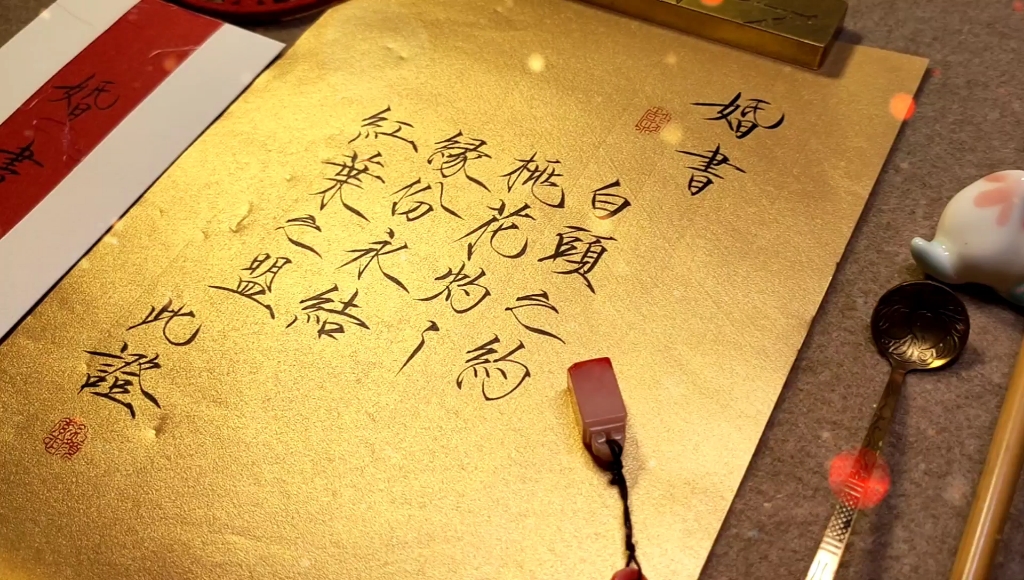 婚書
白頭之約
桃花灼〻
緣份永結
紅葉之盟
此證
婚書